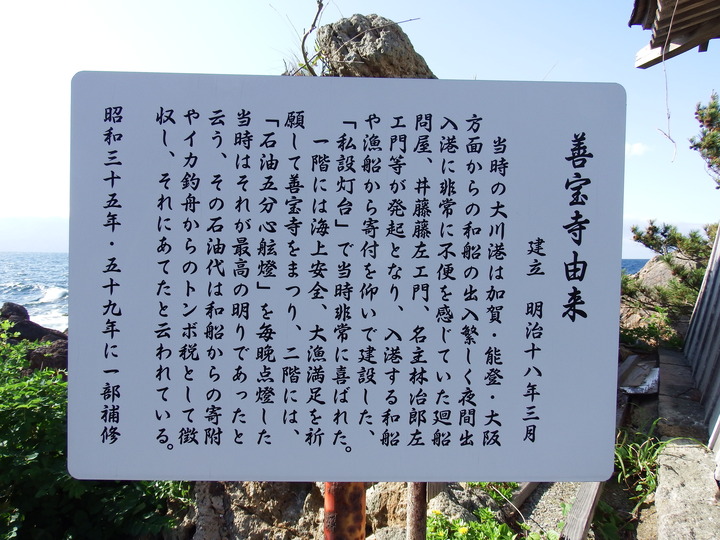 善宝寺由来
建立 明治十八年三月
当時の大川港は加賀・能登・大阪
方面からの和船の出入繁しく夜間出
入港に非常に不便を感じていた廻船
問屋、井藤藤左エ門、名主林治郎左
エ門等が発起となり、入港する和船
や漁船から寄付を仰いで建設した、
「私設灯台」で当時非常に喜ばれた。
一階には海上安全、大漁満足を祈
願して善宝寺をまつり、二階には、
「石油五分心舷燈」を毎晩点燈した
当時はそれが最高の明りであったと
云う、その石油代は和船からの寄附
やイカ釣舟からのトンボ税として徴
収し、それにあてたと云われている。
昭和三十五年・五十九年に一部補修